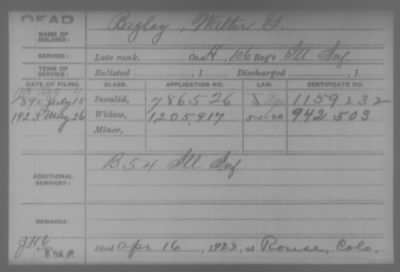 DEAD
NAME OF SOLDIER: Bigley, Milton
SERVICE: Late rank, Co. H, 106 Reg't Ill Inf
TERM OF SERVICE: Enlisted , 1 Discharged , 1
DATE OF FILING. CLASS. APPLICATION NO. LAW. CERTIFICATE NO.
1890 July 15 Invalid, 786526 1159232
1923 May 26 Widow, 1205917 942503
Minor,
ADDITIONAL SERVICES: B 54 Ill Inf
REMARKS:
Died Apr 16, 1923, at Rouse, Colo.